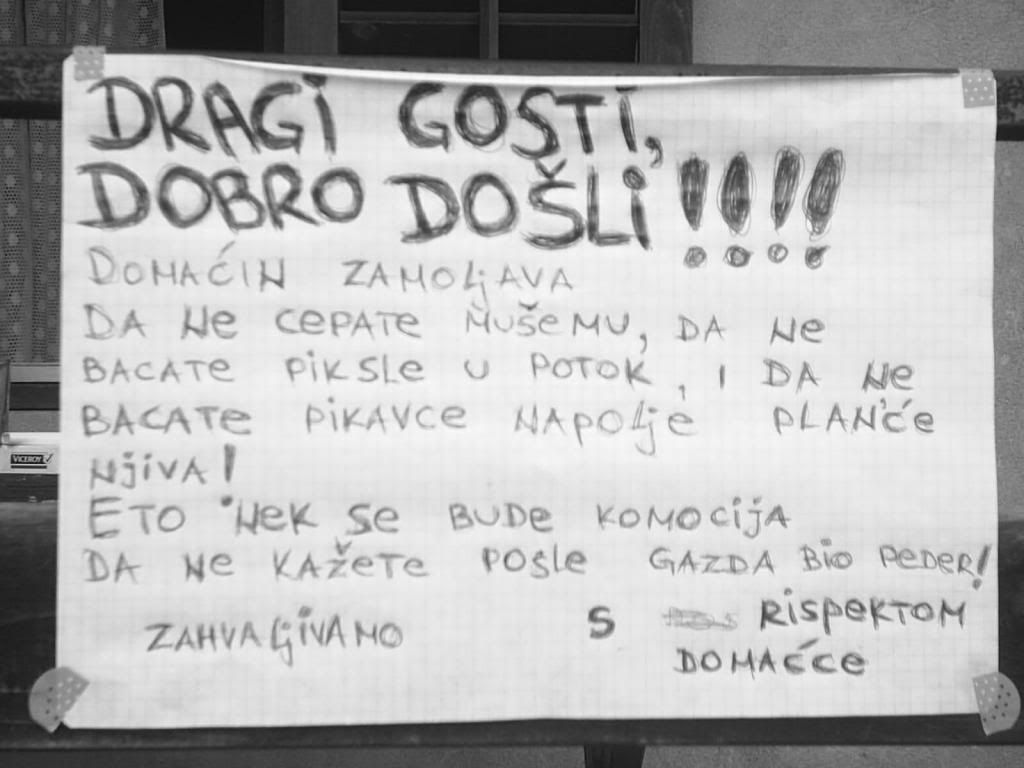 DRAGI GOSTI,
DOBRO DOŠLI !!!!
DOMAĆIN ZAMOLJAVA
DA NE CEPATE MUŠEMU, DA NE
BACATE PIKSLE U POTOK, I DA NE
BACATE PIKAVCE NAPOLJE PLANĆE
NJIVA!
ETO NEK SE BUDE KOMOCIJA
DA NE KAŽETE POSLE GAZDA BIO PEDER!
ZAHVALJIVAMO S RISPEKTOM
DOMAĆCE
VICEROY